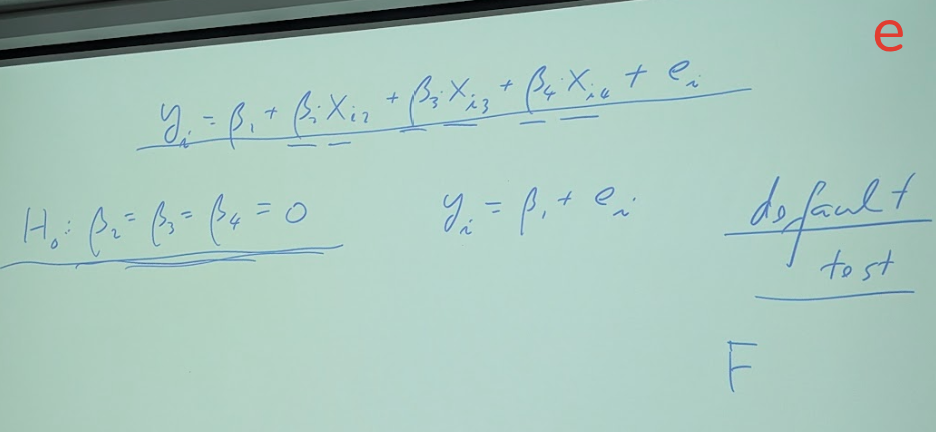 e
yᵢ = β₁ + β₂·Xᵢ₂ + β₃·Xᵢ₃ + β₄·Xᵢ₄ + eᵢ
H₀: β₂ = β₃ = β₄ = 0
yᵢ = β₁ + eᵢ
default
test
F